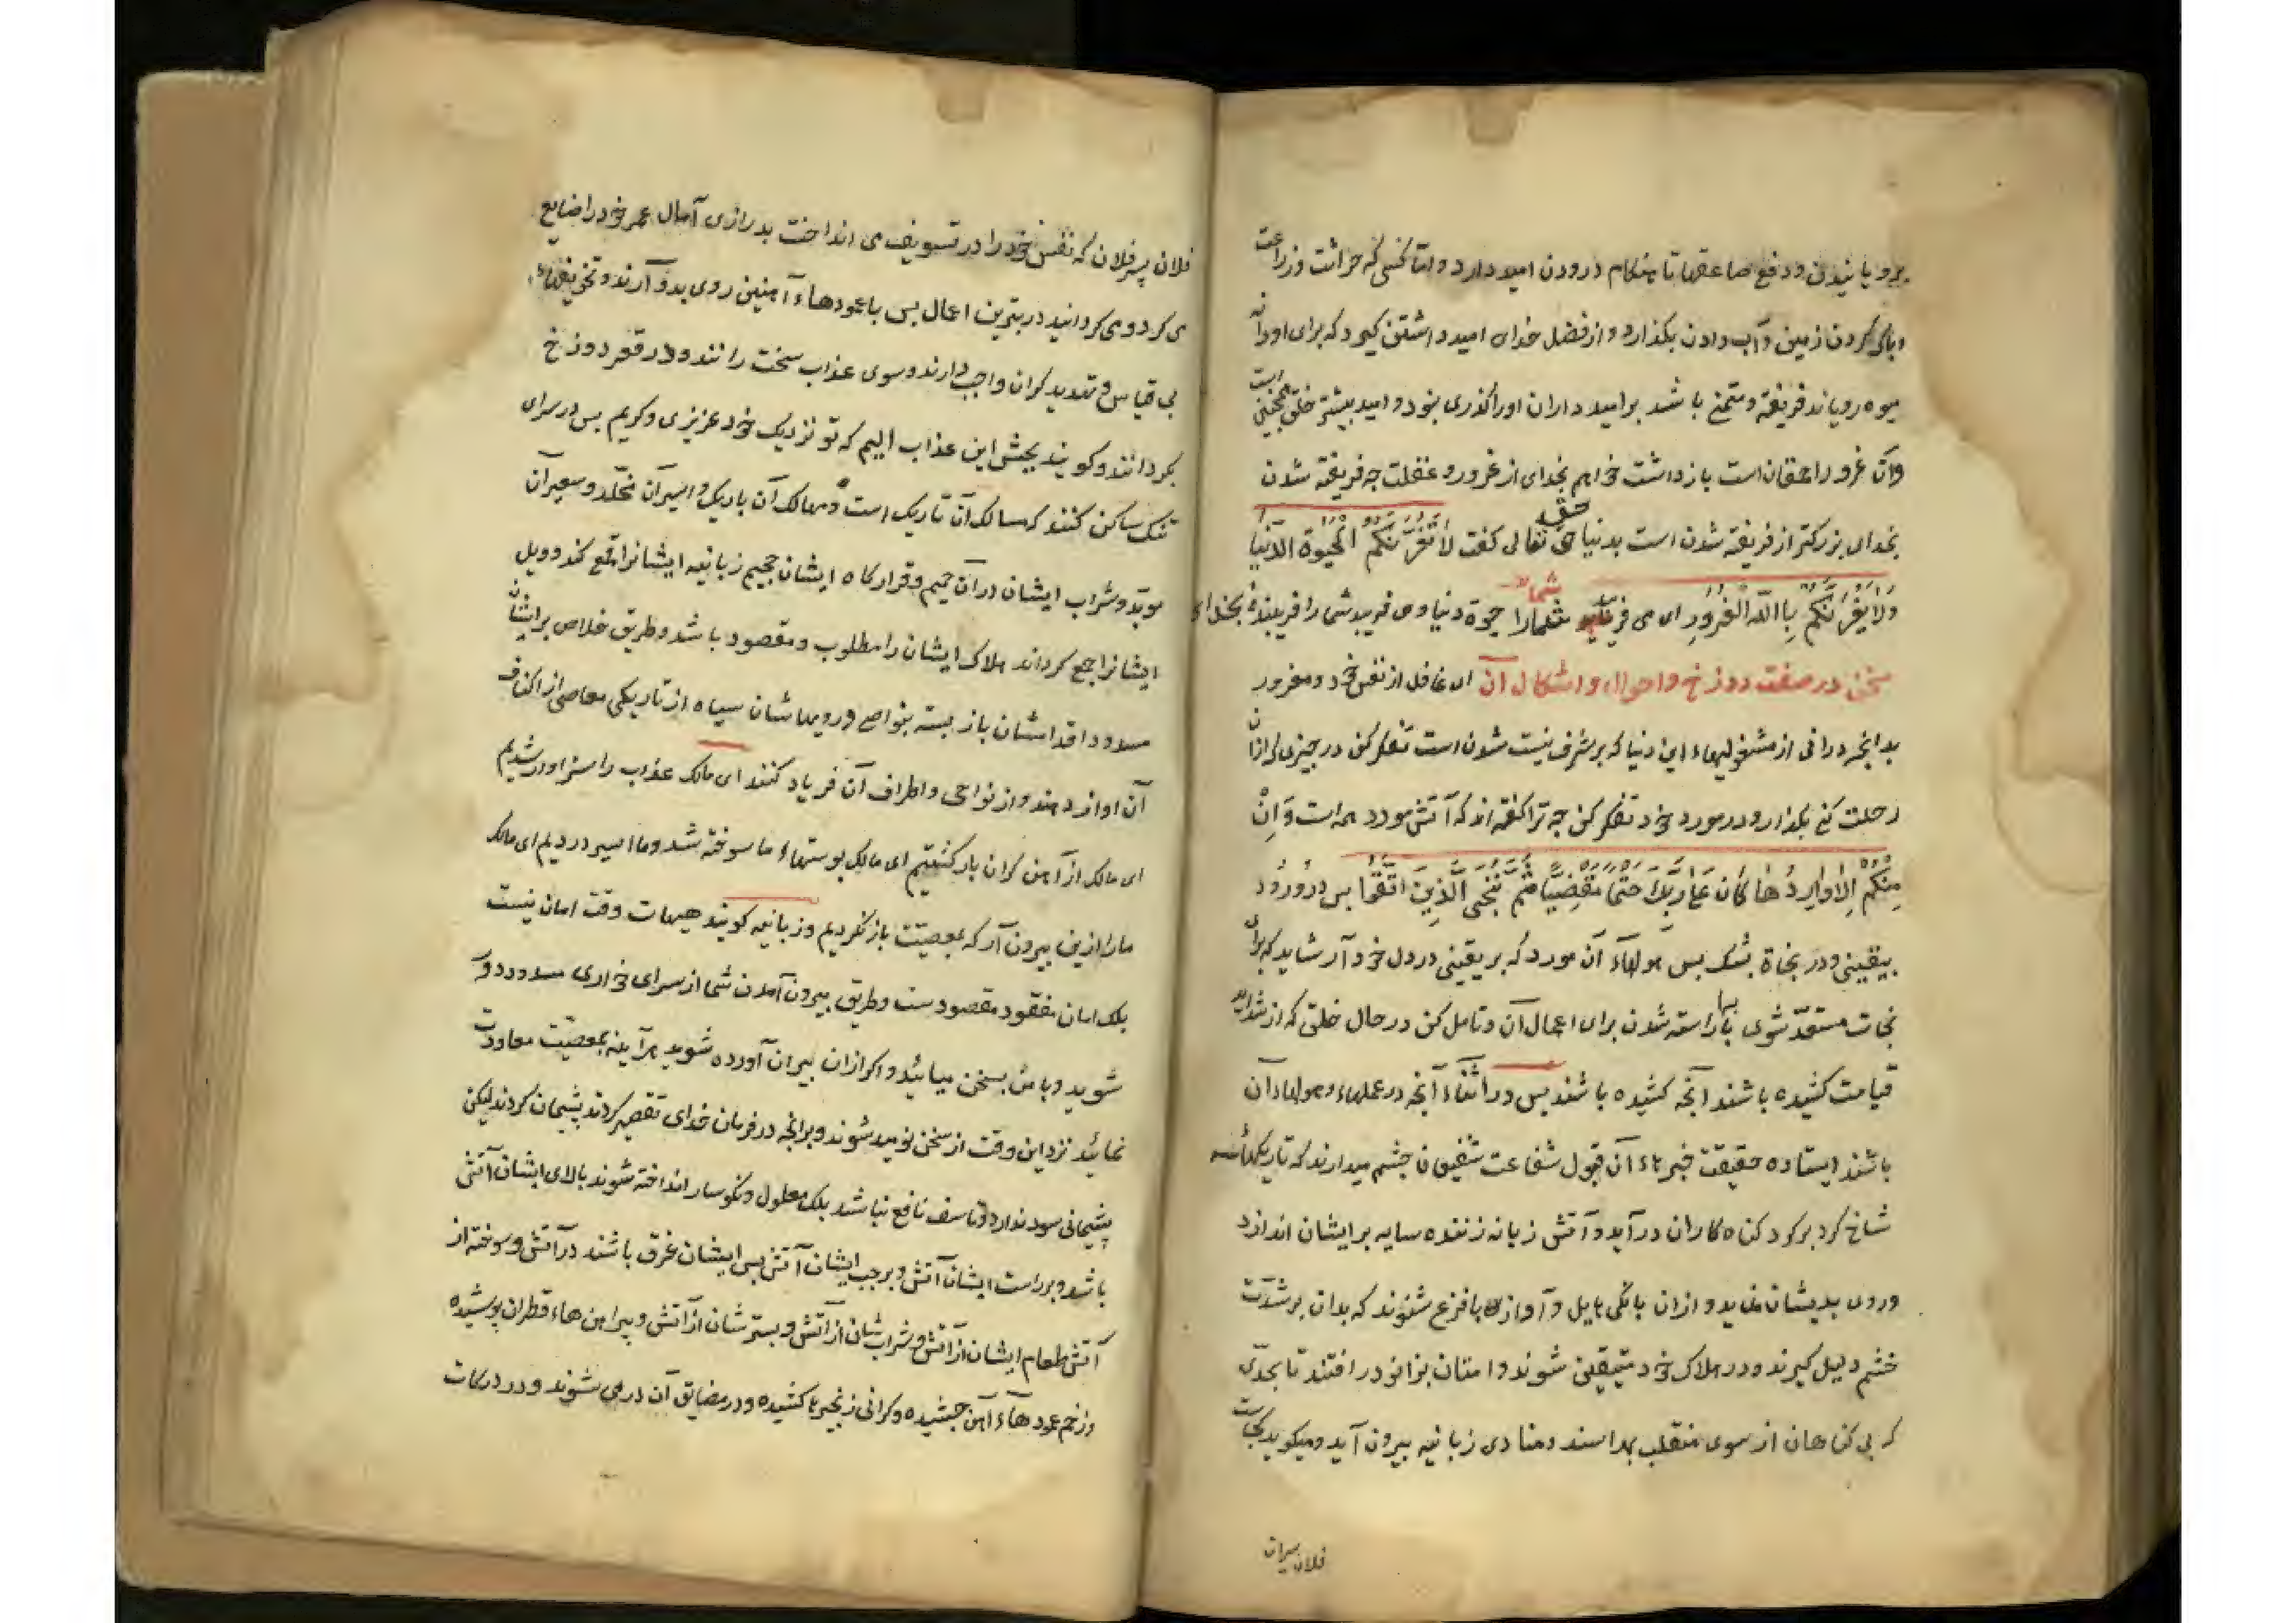 برویانیدن و دفع صاعقها تا هنکام درودن امید دارد و اما کسی که حراثت و زراعت
و پاک کردن زمین و آب دادن بکذارد و از فضل خدای امید داشتن کیرد که برای او دانه
میوه رویاند فریفته و متمنی باشد بر امید داران او را کذری نبود و امید بیشتر خلق همچنین است
و آن غرور احمقان است باز داشت خواهم بخدای از غرور و غفلت چه فریفته شدن
بخدای بزرکتر از فریفته شدن است بدنیا حق تعالی کفت لا تغرنکم الحیوة الدنیا
ولا یغرنکم باالله الغرور ای می فریبد شمارا حیوة دنیا و می فریبد شما را فریبنده بخدای
سخن در صفت دوزخ و احوال و اشکال آن ای غافل از نفس خود و مغرور
بدانچه درانی از مشغولیهاء این دنیا که بر شرف نیست شدن است تفکر کن در چیزی که ازان
رحلت کنی بکذار و در مورد خود تفکر کن چه ترا کفته اند که آتش مورد همه است وَاِنْ
مِنْکُم اِلا وارِدُها کانَ عَلی رَبِّکَ حَتْماً مَقْضِیّاً ثُمَّ نُنَجّی الَّذینَ اتَّقَوا پس در ورود
بیقینی و در نجاة بشک پس هولهاء آن مورد که بر یقینی در دل خود آر شاید که برای
نجات مستعد شوی بآراسته شدن برای اعمال آن و تامل کن در حال خلق که از شداید
قیامت کشیده باشند آنچه کشیده باشند پس در اثناء آنچه در عملهاء و هولهاء آن
باشند ایستاده حقیقت خبرهاء آن قبول شفاعت شفیعان چشم میدارند که تاریکهاء
شاخ کرد بر کرد کناه کاران در آید و آتش زبانه زننده سایه بر ایشان اندازد
و روی بدیشان نماید و ازان بانکی هایل و آوازی با فزع شنوند که بدان بر شدّت
خشم دلیل کیرند و در هلاک خود متیقن شوند و امتان بزانو در افتند تا بحدّی
که بی کناهان از سوی منقلب بهراسند و منادی زبانیه بیرون آید و میکوید کجاست
فلان پسران
فلان پسر فلان که نفس خود را در تسویف می انداخت بدرازی آمال عمر خود را ضایع
می کرد و می کردانید در بترین اعمال پس با عمودهاء آهنین روی بدو آرند و تخویفهاء
بی قیاس و تهدید کران واجب دارند و سوی عذاب سخت رانند و در قعر دوزخ
بکردانند و کویند بچش این عذاب الیم که تو نزدیک خود عزیزی و کریم پس در سرای
تنک ساکن کنند که مسالک آن تاریک است و مهالک آن باریک و اسیر آن مخلّد و سعیر آن
موبّد و شراب ایشان در آن حمیم و قرارکاه ایشان جحیم زبانیه ایشانرا قمع کند و ویل
ایشانرا جمع کرداند هلاک ایشان را مطلوب و مقصود باشد و طریق خلاص بر ایشان
مسدود اقدامشان باز بسته بنواصی و رویهاشان سیاه از تاریکی معاصی از اکناف
آن اواز دهند و از نواحی و اطراف آن فریاد کنند ای مالک عذاب را سزاوار شدیم
ای مالک از آهن کران بار کشتیم ای مالک پوستهاء ما سوخته شد و ما اسیر دردیم ای مالک
ما را ازین بیرون آر که بمعصیّت باز نکردیم و زبانیه کویند هیهات وقت امان نیست
بلک امان مفقود مقصودست و طریق بیرون آمدن شما از سرای خواری مسدود دور
شوید و با من بسخن میائید و اکر ازان بیران آورده شوید هرآینه بمعصیّت معاودت
نمائید نزد این وقت از سخن نومید شوند و بر انچه در فرمان خدای تقصیر کردند پشیمان کردند لیکن
پشیمانی سود ندارد و تاسف نافع نباشد بلک معلول و نکوسار انداخته شوند بالای ایشان آتش
باشد و بر راست ایشان آتش و بر چپ ایشان آتش پس ایشان غرق باشند در آتش و سوخته از
آتش طعام ایشان از آتش و شراب شان از آتش و بستر شان از آتش و پیراهن هاء قطران پوشیده
و زخم عمودهاء آهن چشیده و کرانی زنجیرها کشیده و در مضایق آن در می شوند و در درکات